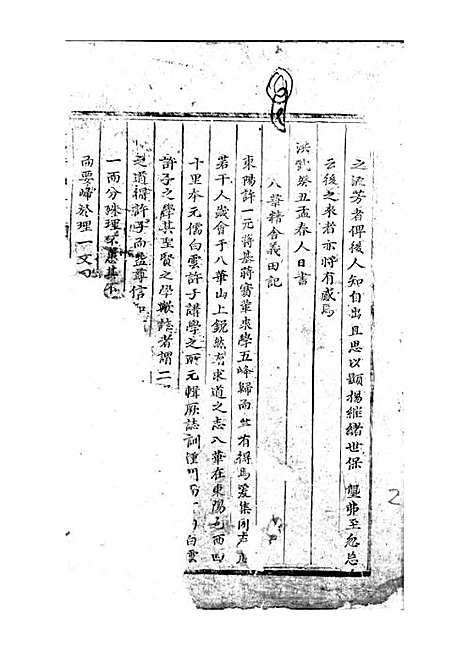 之流芳者俾後人知自出且思以顯揚繼緒世保 龔弗至忽忘
云後之来者亦將有感焉
洪武癸丑孟春人日書
八華精舍義田記
東陽許一元蔣基蔣 軰来學五峰歸而 有得焉爰集同志
若干人歲會于八華山上銳然有求道之志八華在東陽邑西四
十里本元儒白雲許子講學之所元輯厥誌訓 門 白雲
許子之學其至賢之學歟誌者謂二
之道得許子而益尊信
一而分殊理不患其不
而要歸於理一文
2